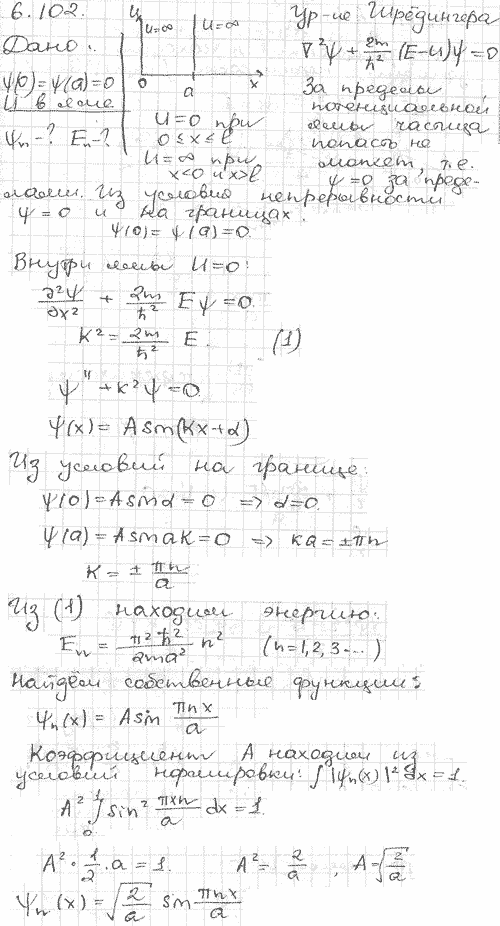 6.102.
Дано:
ψ(0)=ψ(a)=0
U в яме
ψn-? En-?
U
U=∞ U=∞
0 a x
U=0 при
0≤x≤ℓ
U=∞ при
x<0 и x>ℓ
Ур-ие Шрёдингера
∇²ψ + 2m/ħ² (E-U)ψ=0
За пределы
потенциальной
ямы частица
попасть не
может, т.е.
ψ=0 за преде-
лами. Из условия непрерывности
ψ=0 и на границах.
ψ(0)=ψ(a)=0.
Внутри ямы U=0:
∂²ψ/∂x² + 2m/ħ² Eψ=0.
K²= 2m/ħ² E. (1)
ψ'' + k²ψ=0.
ψ(x)= A sin(Kx+α)
Из условий на границе:
ψ(0)=A sinα=0 => α=0.
ψ(a)=A sin aK=0 => Ka=±πn
K=± πn/a
Из (1) находим энергию:
En = π²ħ²/2ma² n² (n=1,2,3...)
Найдём собственные функции:
ψn(x)= A sin πnx/a
Коэффициент A находим из
условий нормировки: ∫|ψn(x)|² dx=1.
A² ∫ sin² πxn/a dx=1.
A²·1/2·a=1. A²= 2/a, A=√2/a
ψn(x)=√2/a sin πnx/a